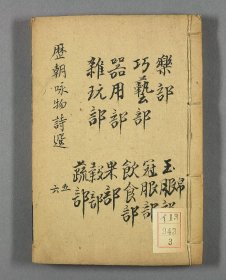 樂部
巧藝部
器用部
雜玩部
玉帛部
冠服部
飲食部
果部
穀部
蔬部
歷朝咏物詩選
五六
343
3